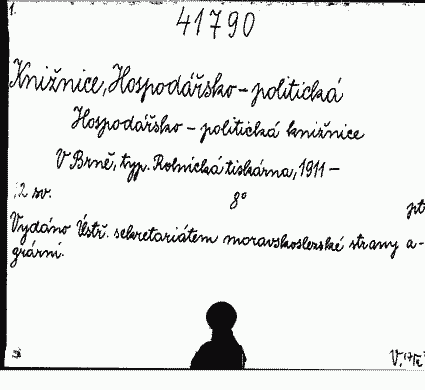 1.
41790
Knižnice, Hospodářsko-politická
Hospodářsko-politická knižnice
V Brně, typ. Rolnická tiskárna, 1911-
2 sv. 8° pt
Vydáno Ústř. sekretariátem moravskoslezské strany a-
grární.